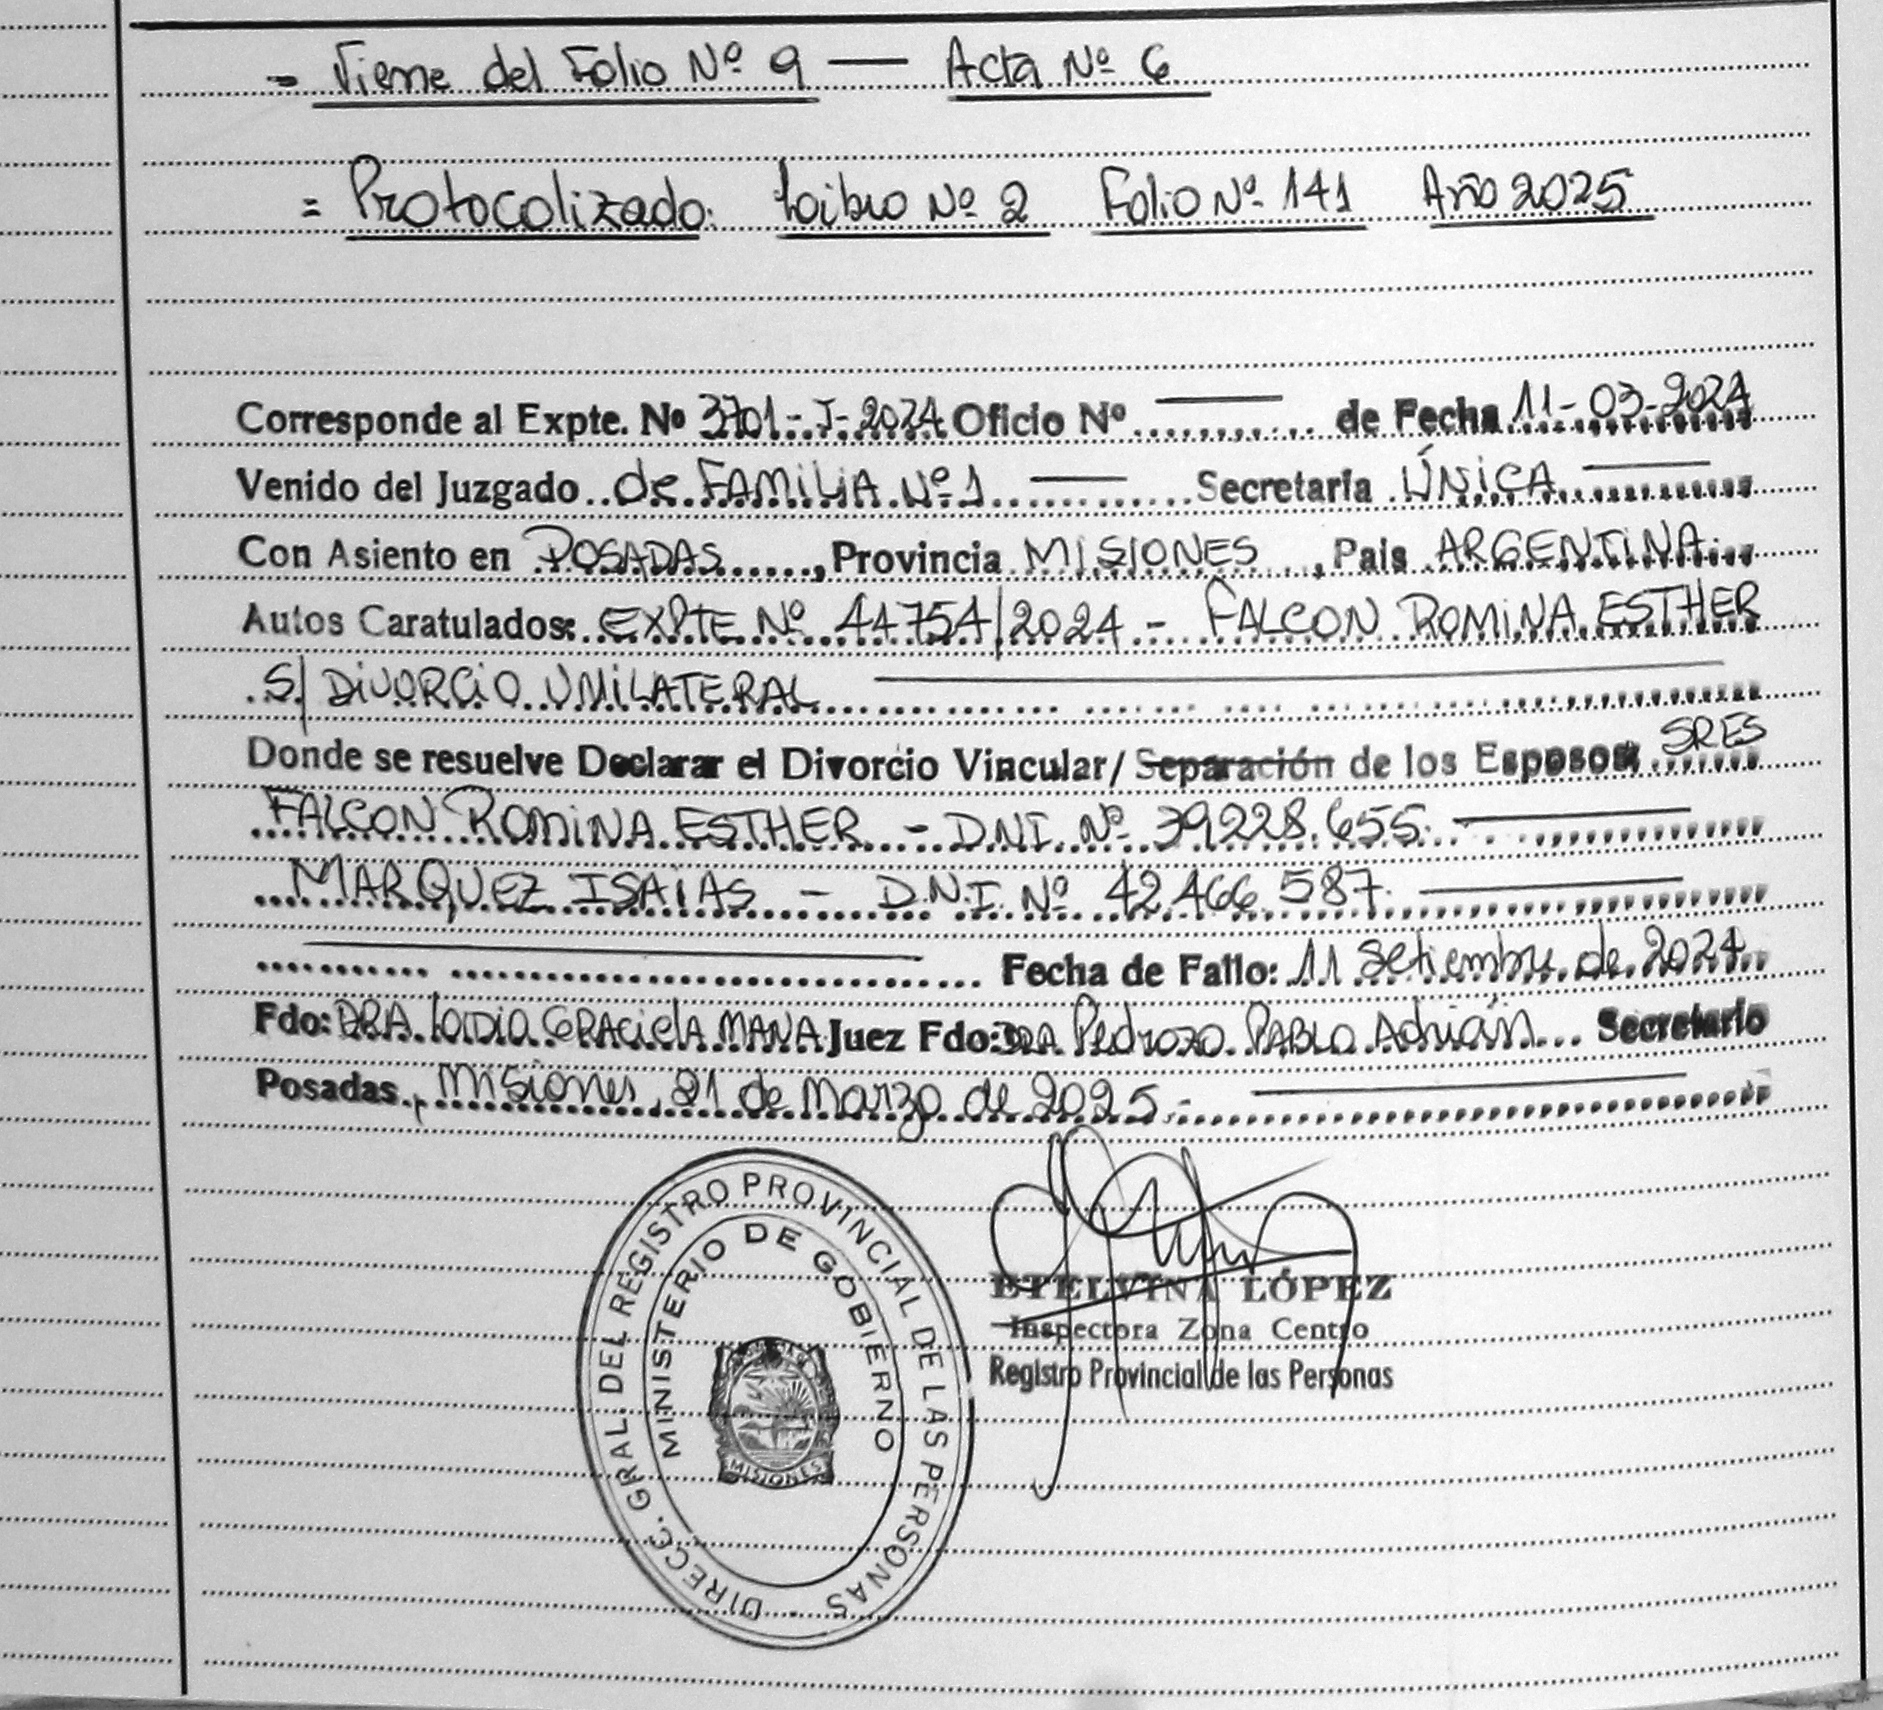 = Viene del Folio Nº 9 — Acta Nº 6
= Protocolizado: Loibro Nº 2 Folio Nº 141 Año 2025
Corresponde al Expte. Nº 3701-J-2024 Oficio Nº ——— de Fecha 11-03-2024
Venido del Juzgado de FAMILIA Nº 1 —— Secretaría ÚNICA ———
Con Asiento en POSADAS, Provincia MISIONES, País ARGENTINA.
Autos Caratulados: EXPTE Nº 44754/2024 - FALCON ROMINA ESTHER
S/ DIVORCIO UNILATERAL ———
Donde se resuelve Declarar el Divorcio Vincular/ Separación de los Esposos SRES
FALCON ROMINA ESTHER - DNI Nº 39.228.655. ———
MARQUEZ ISAIAS - D.N.I. Nº 42.466.587. ———
——— Fecha de Fallo: 11 Setiembre de 2024.
Fdo: DRA. Loidia GRACIELA MANA Juez Fdo: DRA Pedrozo PABLO Adrián Secretario
Posadas, Misiones, 21 de Marzo de 2025.- ———
DIRECC. GRAL. DEL REGISTRO PROVINCIAL DE LAS PERSONAS
MINISTERIO DE GOBIERNO
MISIONES
ETELVINA LÓPEZ
Inspectora Zona Centro
Registro Provincial de las Personas